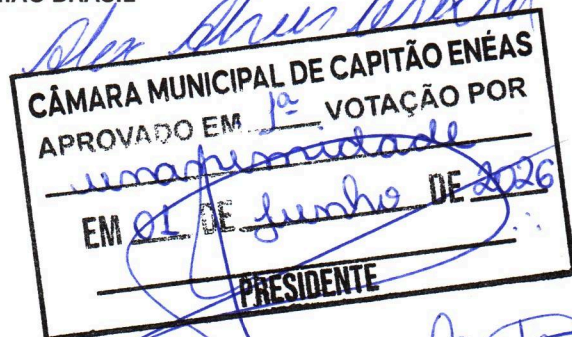 BRASIL
CÂMARA MUNICIPAL DE CAPITÃO ENÉAS
APROVADO EM 1ª VOTAÇÃO POR
unanimidade
EM 01 DE Junho DE 2026
PRESIDENTE